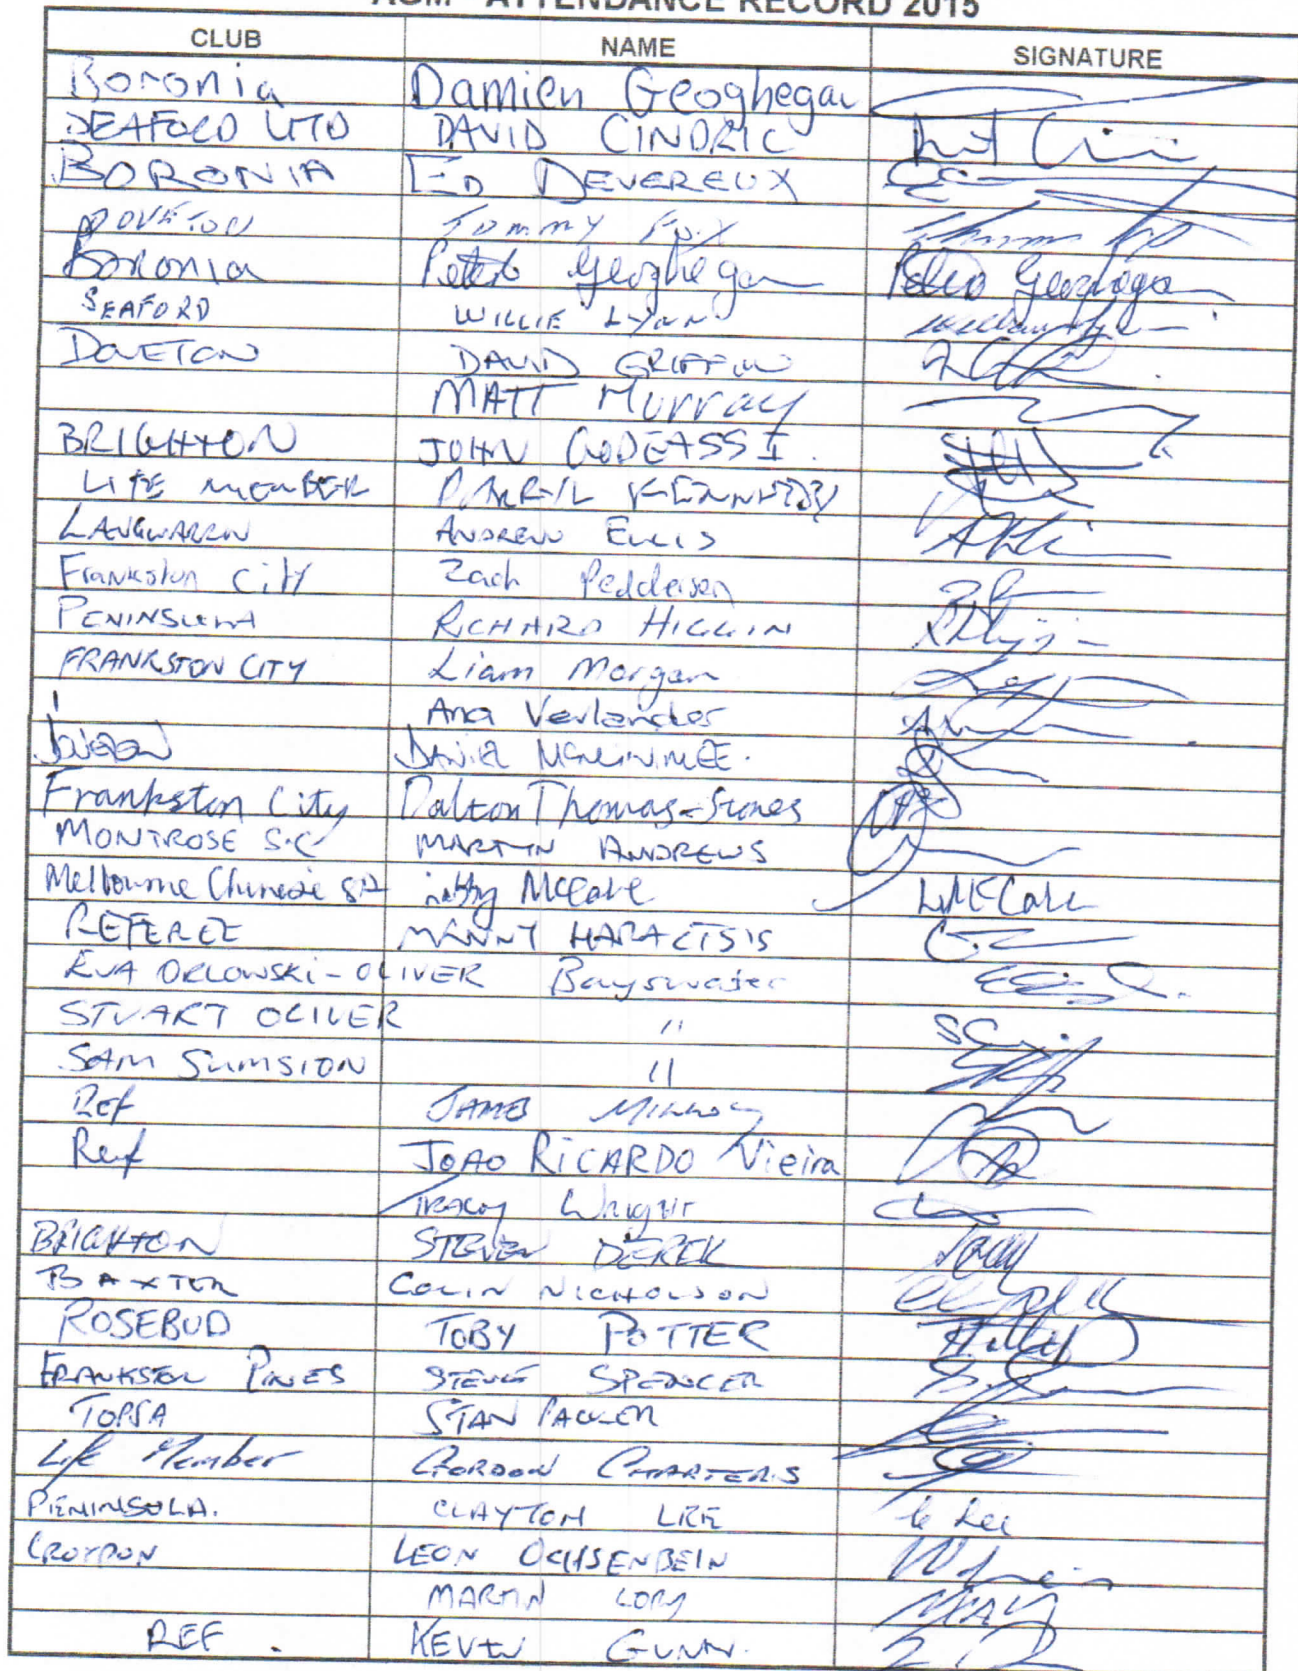 AGM - ATTENDANCE RECORD 2015
CLUB NAME SIGNATURE
Boronia Damien Geoghegan
SEAFORD UTD DAVID CINDRIC
BORONIA ED DEVEREUX
DOVETON Tommy Fox
Boronia Peter Geoghegan Peter Geoghegan
SEAFORD WILLIE LYNN
DOVETON DAVID GRIFFIN
MATT Murray
BRIGHTON JOHN GODEASSI.
LIFE MEMBER DARRYL KENNEDY
LANGWARRIN ANDREW ELLIS
Frankston City Zach Peddersen
PENINSULA RICHARD HIGGIN
FRANKSTON CITY Liam Morgan
Ana Verlander
DANIEL
Frankston City Dalton Thomas-Jones
MONTROSE S.C MARTYN ANDREWS
Melbourne Chinese McCabe
REFEREE MANNY HARAETSIS
EVA ORLOWSKI-OLIVER Bayswater
STUART OLIVER "
SAM SUMSION "
Ref JAMES
Ref JOAO RICARDO Vieira
TRACEY Wright
BRIGHTON STEVEN DEREK
BAXTER COLIN NICHOLSON
ROSEBUD TOBY POTTER
FRANKSTON PINES STEVE SPENCER
STAN PACKER
Life Member GORDON CHARTERS
PENINSULA. CLAYTON LEE C Lee
CROYDON LEON OCHSENBEIN
MARTIN
REF. KEVIN GUNN.